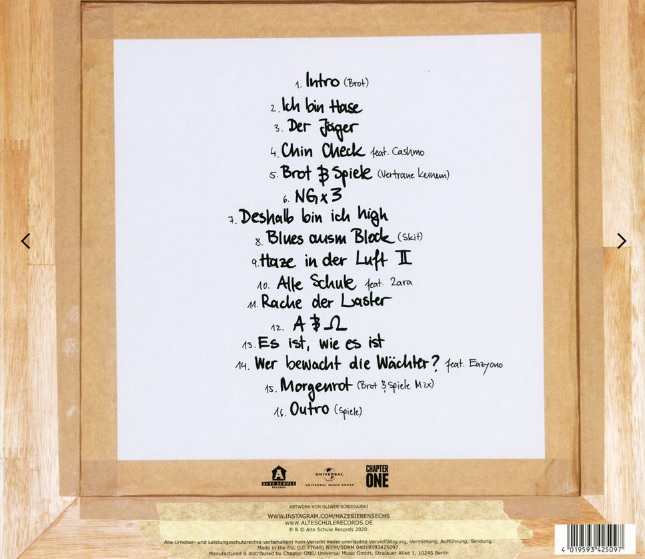 1. Intro (Brot)
2. Ich bin Hase
3. Der Jäger
4. Chin Check feat. Cashmo
5. Brot & Spiele (Vertraue keinem)
6. NG x 3
7. Deshalb bin ich high
8. Blues ausm Block (Skit)
9. Haze in der Luft II
10. Alte Schule feat. 2ara
11. Rache der Laster
12. A & Ω
13. Es ist, wie es ist
14. Wer bewacht die Wächter? feat. Eazyono
15. Morgenrot (Brot & Spiele Mix)
16. Outro (Spiele)
A
ALTE SCHULE
RECORDS
UNIVERSAL
UNIVERSAL MUSIC GROUP
CHAPTER
ONE
WWW.INSTAGRAM.COM/HAZESIEBENSECHS
WWW.ALTESCHULERECORDS.DE
℗ & © Alte Schule Records 2020
Alle Urheber- und Leistungsschutzrechte vorbehalten! Kein Verleih! Keine unerlaubte Vervielfältigung, Vermietung, Aufführung, Sendung.
Made in the EU. (LC 77648) BIEM/GEMA 04019593425097
Manufactured & distributed by Chapter ONE/ Universal Music GmbH, Stralauer Allee 1, 10245 Berlin
4 019593 425097